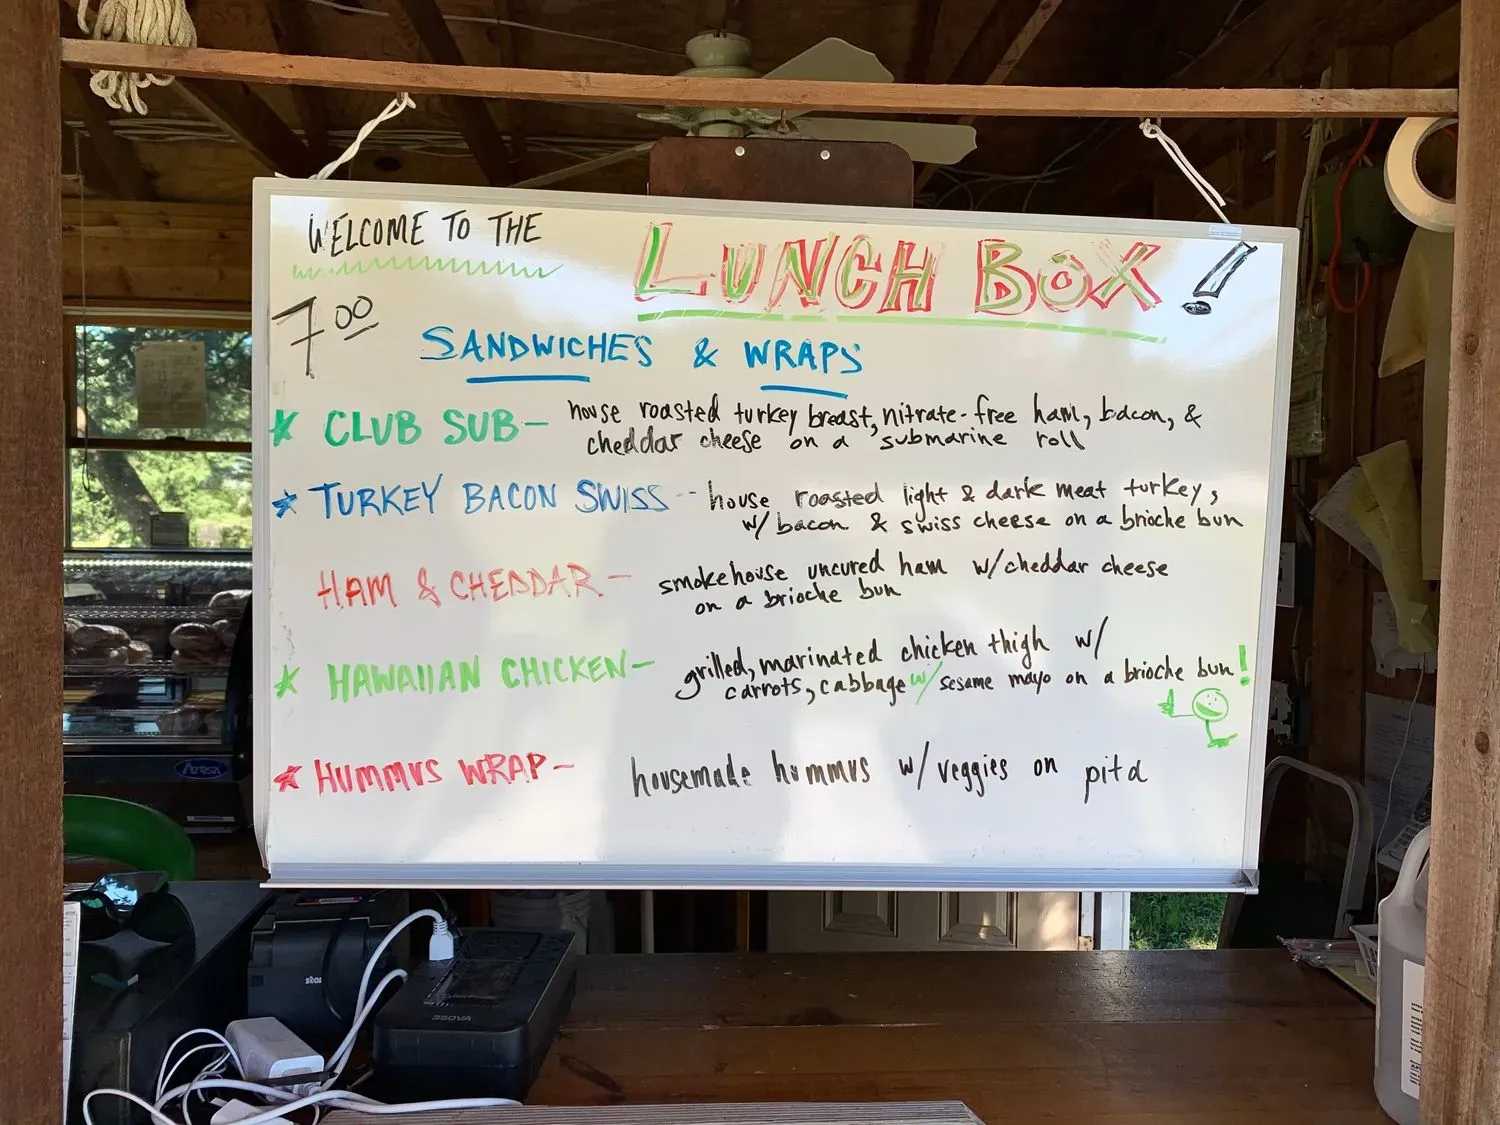 WELCOME TO THE
LUNCH BOX!
7.00
SANDWICHES & WRAPS
★ CLUB SUB - house roasted turkey breast, nitrate-free ham, bacon, &
cheddar cheese on a submarine roll
★ TURKEY BACON SWISS -- house roasted light & dark meat turkey,
w/ bacon & swiss cheese on a brioche bun
HAM & CHEDDAR - smokehouse uncured ham w/ cheddar cheese
on a brioche bun
★ HAWAIIAN CHICKEN - grilled, marinated chicken thigh w/
carrots, cabbage w/ sesame mayo on a brioche bun!
★ HUMMUS WRAP - housemade hummus w/ veggies on pita
Artisa
star
350VA